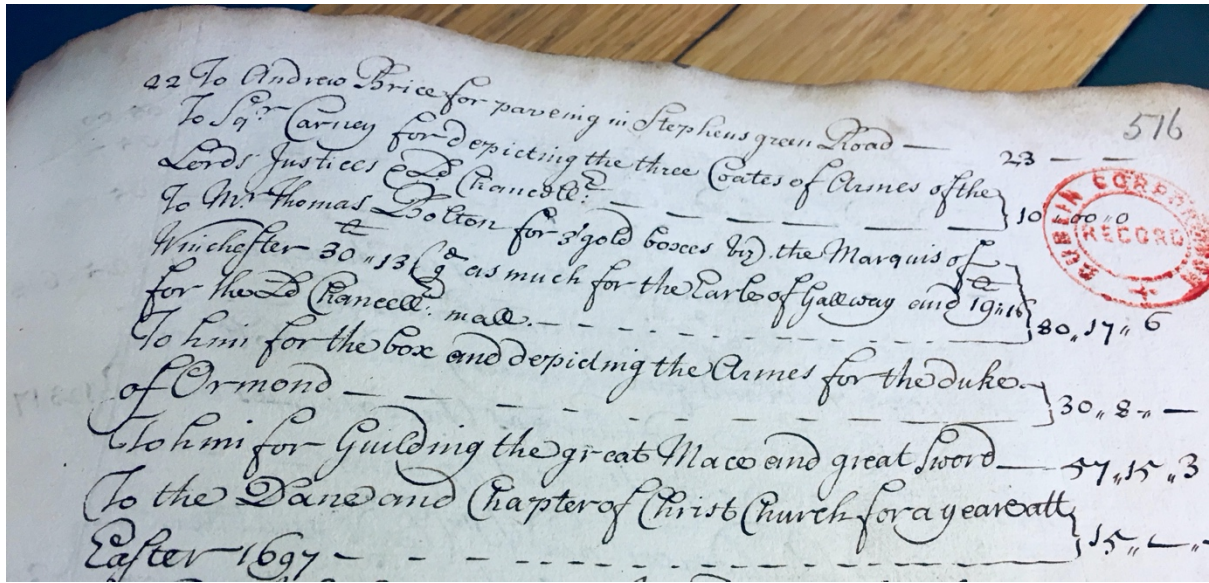 576
22 To Andrew Brice for paveing in Stephens green Road — 23 — —
To Sqr. Carney for depicting the three Coates of Armes of the
Lords Justices & Ld Chancellr. — — — — — 10 „ 00 „ 0
To Mr Thomas Bolton for 3 gold boxes vizt. the Marquis of
Winchester 30 „ 13 as much for the Earle of Gallway and 19 „ 16
for the Ld Chancellr. mall. - - - - - 80 „ 17 „ 6
To him for the box and depicting the Armes for the duke
of Ormond — — — — — 30 „ 8 „ —
To him for Guilding the great Mace and great sword — 57 „ 15 „ 3
To the Dane and Chapter of Christ Church for a yeare att
Easter 1697 - - - - - 15 „ — „ -
DUBLIN CORPORATION
RECORD